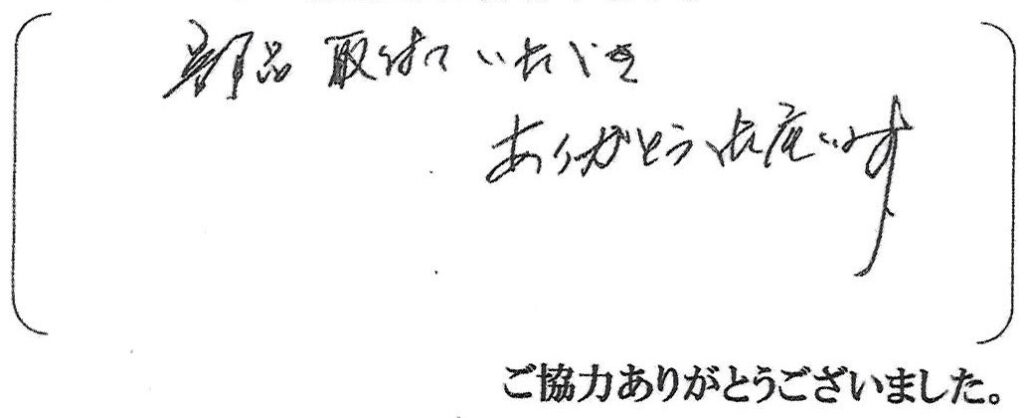 部品取付ていただき
ありがとう御座います
ご協力ありがとうございました。